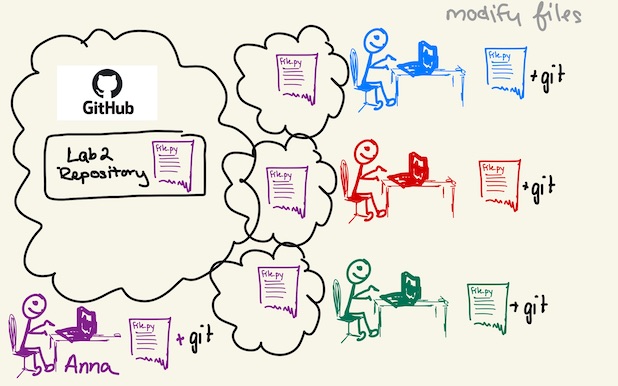 modify files
GitHub
Lab 2
Repository
file.py
file.py
file.py
+ git
file.py
file.py
+ git
file.py
file.py
+ git
file.py
file.py
+ git
Anna